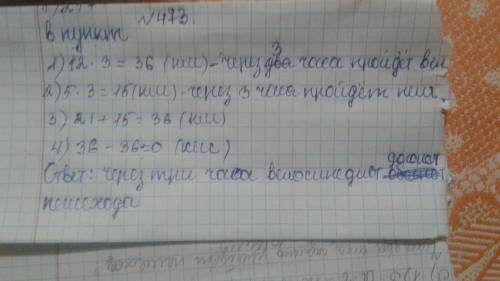 №473.
в пункт
1) 12 · 3 = 36 (км) - через 3 часа пройдёт вел
2) 5 · 3 = 15 (км) - через 3 часа пройдёт пеш.
3) 21 + 15 = 36 (км)
4) 36 - 36 = 0 (км)
Ответ: через три часа велосипедист догонит
пешехода